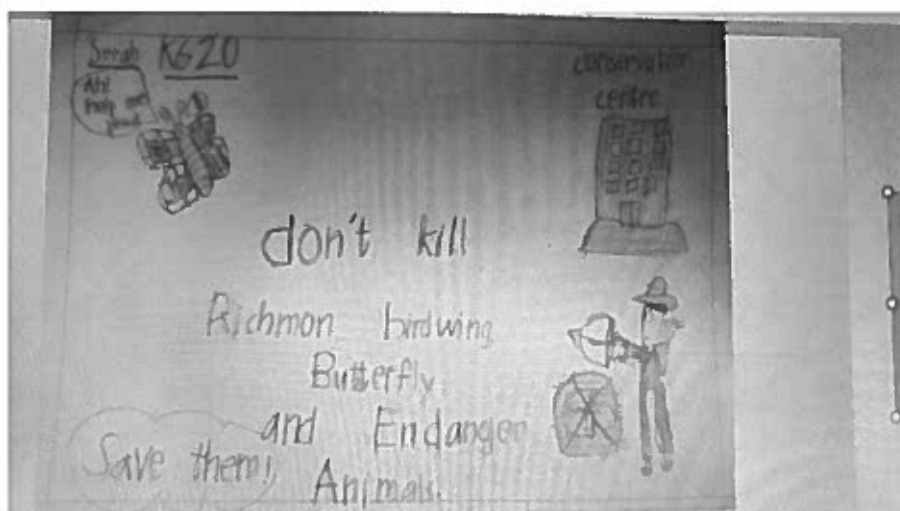 Sarah KG20
Ah!
help me
conservation
centre
don't kill
Richmon birdwing
Butterfly
and Endanger
Animals.
Save them!